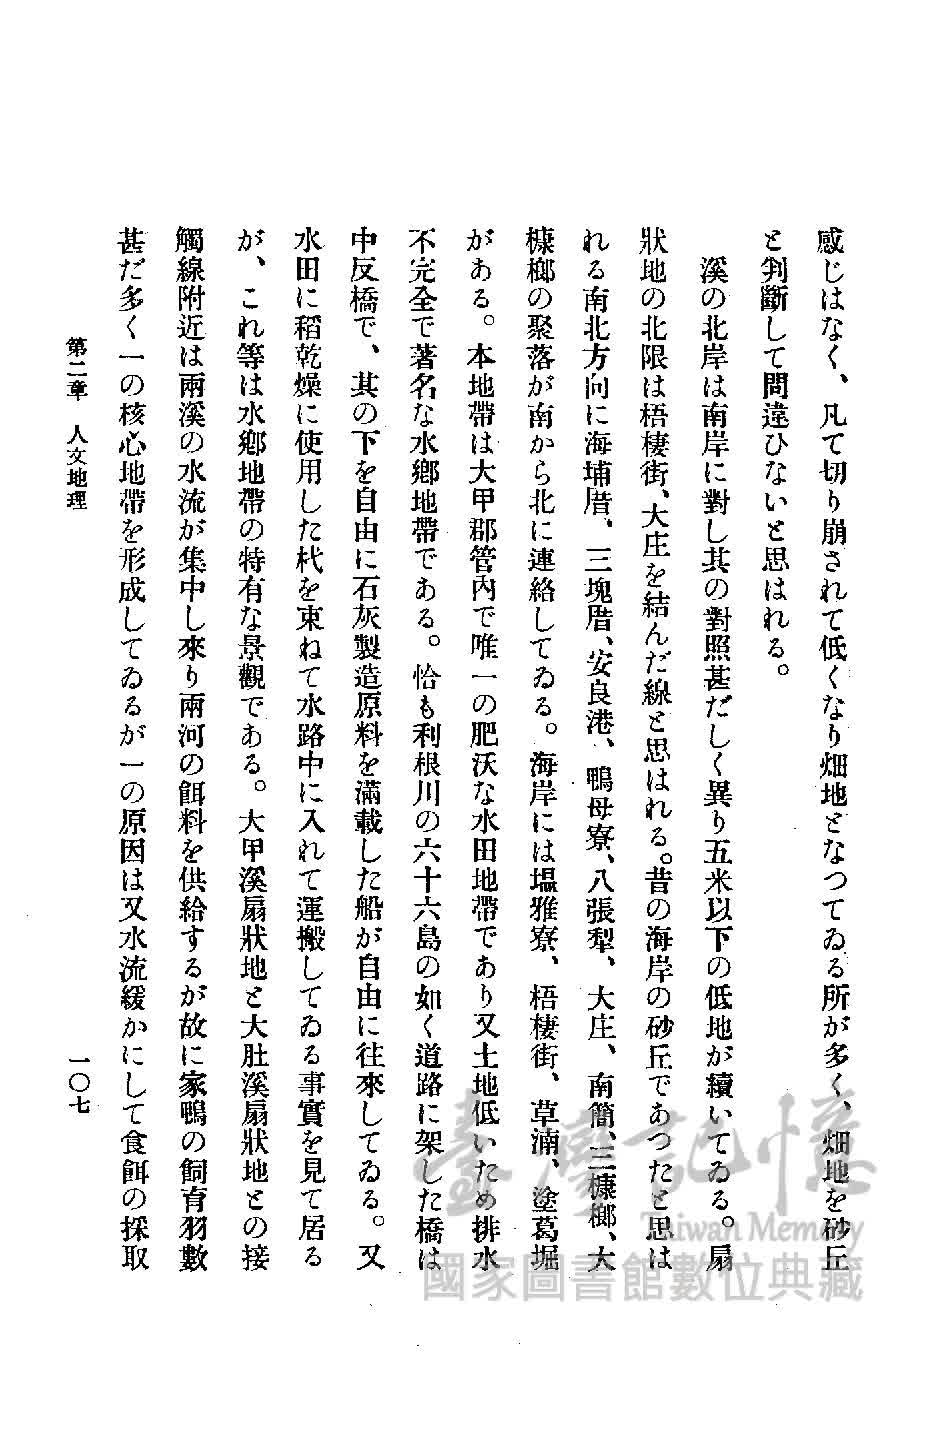 感じはなく、凡て切り崩されて低くなり畑地となつてゐる所が多く、畑地を砂丘
と判斷して間違ひないと思はれる。
溪の北岸は南岸に對し其の對照甚だしく異り五米以下の低地が續いてゐる。扇
狀地の北限は梧棲街、大庄を結んだ線と思はれる。昔の海岸の砂丘であつたと思は
れる南北方向に海埔厝、三塊厝、安良港、鴨母寮、八張犁、大庄、南簡、三槺榔、大
槺榔の聚落が南から北に連絡してゐる。海岸には塭雅寮、梧棲街、草湳、塗葛堀
がある。本地帶は大甲郡管內で唯一の肥沃な水田地帶であり又土地低いため排水
不完全で著名な水鄕地帶である。恰も利根川の六十六島の如く道路に架した橋は
中反橋で、其の下を自由に石灰製造原料を滿載した船が自由に往來してゐる。又
水田に稻乾燥に使用した杙を束ねて水路中に入れて運搬してゐる事實を見て居る
が、これ等は水鄕地帶の特有な景觀である。大甲溪扇狀地と大肚溪扇狀地との接
觸線附近は兩溪の水流が集中し來り兩河の餌料を供給するが故に家鴨の飼育羽數
甚だ多く一の核心地帶を形成してゐるが一の原因は又水流緩かにして食餌の採取
第二章 人文地理
一〇七
臺灣記憶
Taiwan Memory
國家圖書館數位典藏